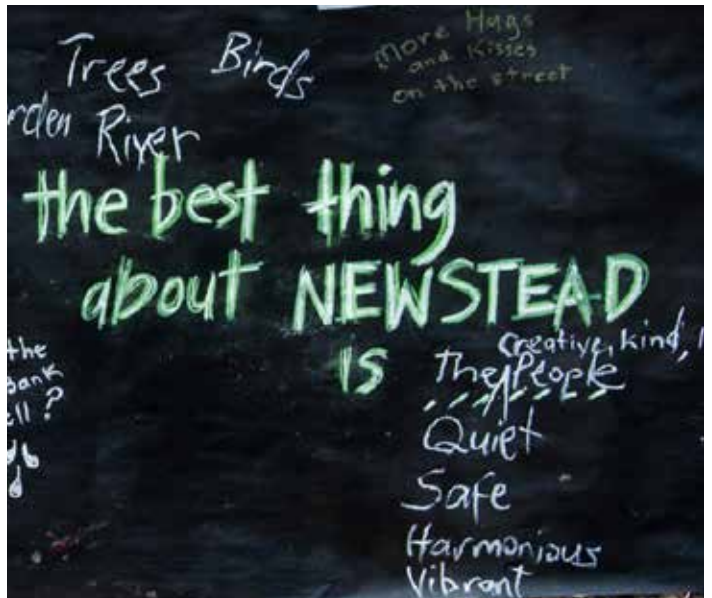 Trees Birds
More Hugs
and Kisses
on the street
rden River
the best thing
about NEWSTEAD
is
the
Bank
ell?
Creative, kind,
The People
Quiet
Safe
Harmonious
Vibrant